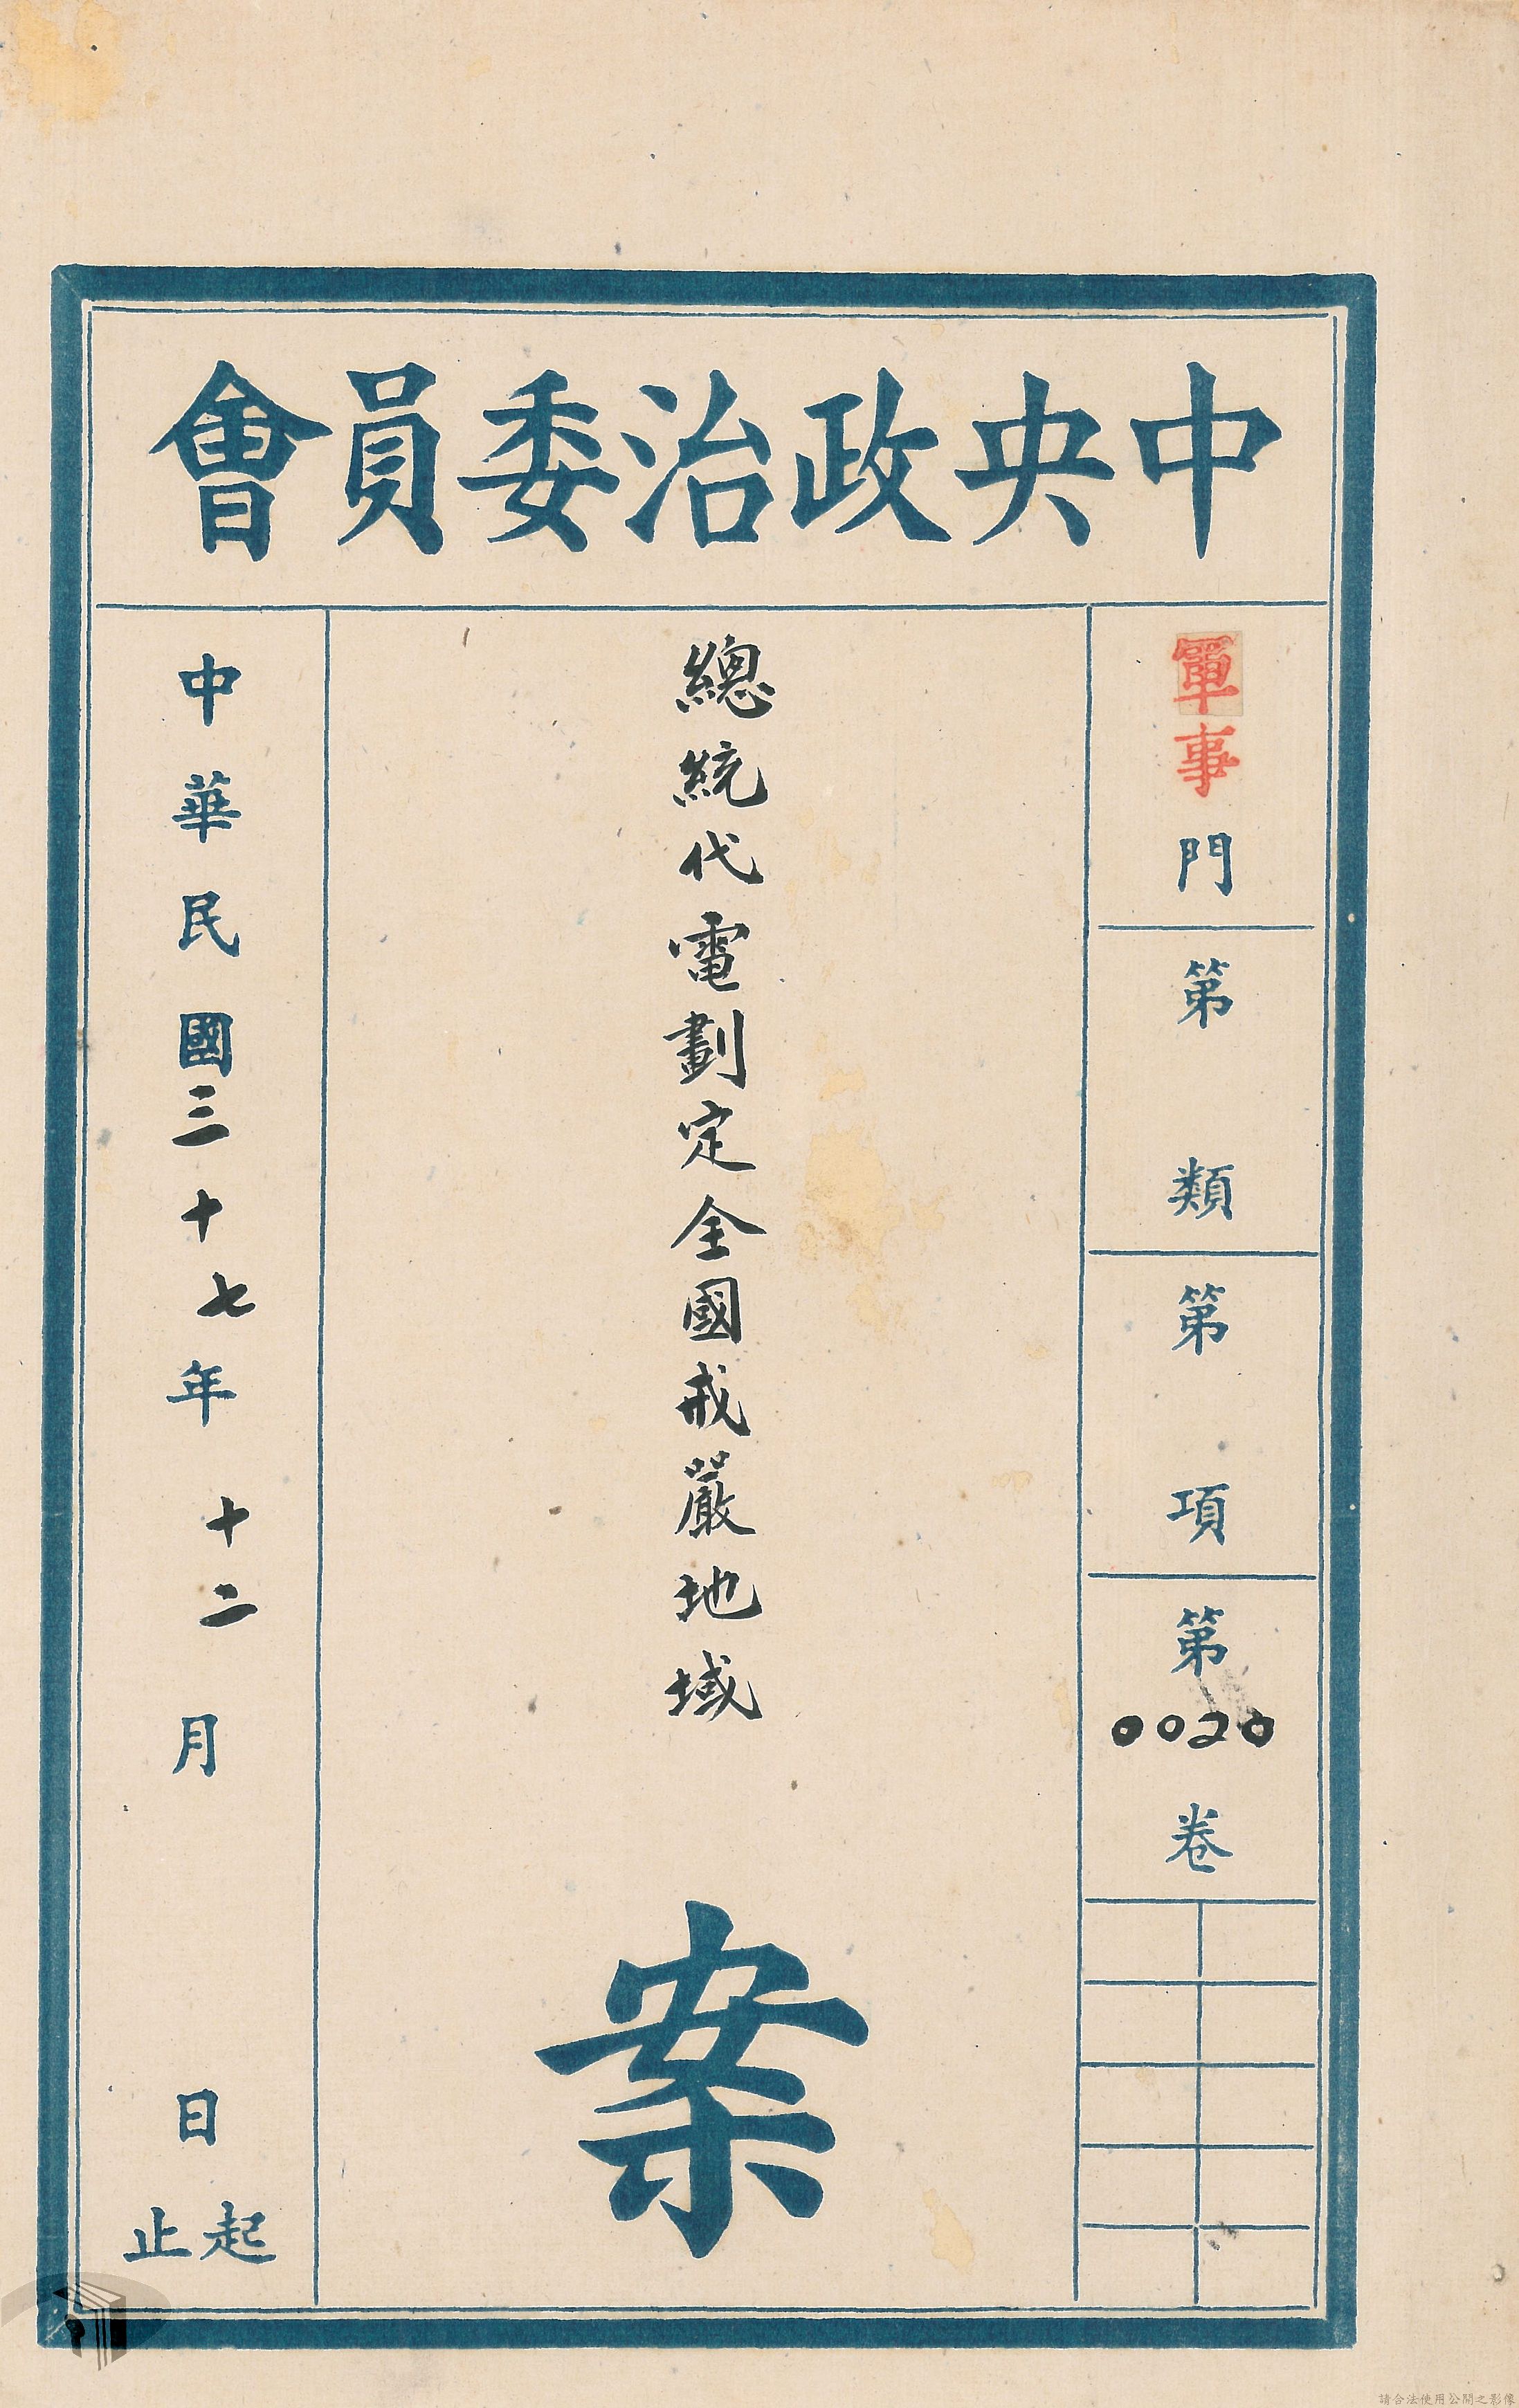 中央政治委員會
軍事門
第 類
第 項
第0020卷
總統代電劃定全國戒嚴地域
案
中華民國三十七年十二月 日起止
請合法使用公開之影像